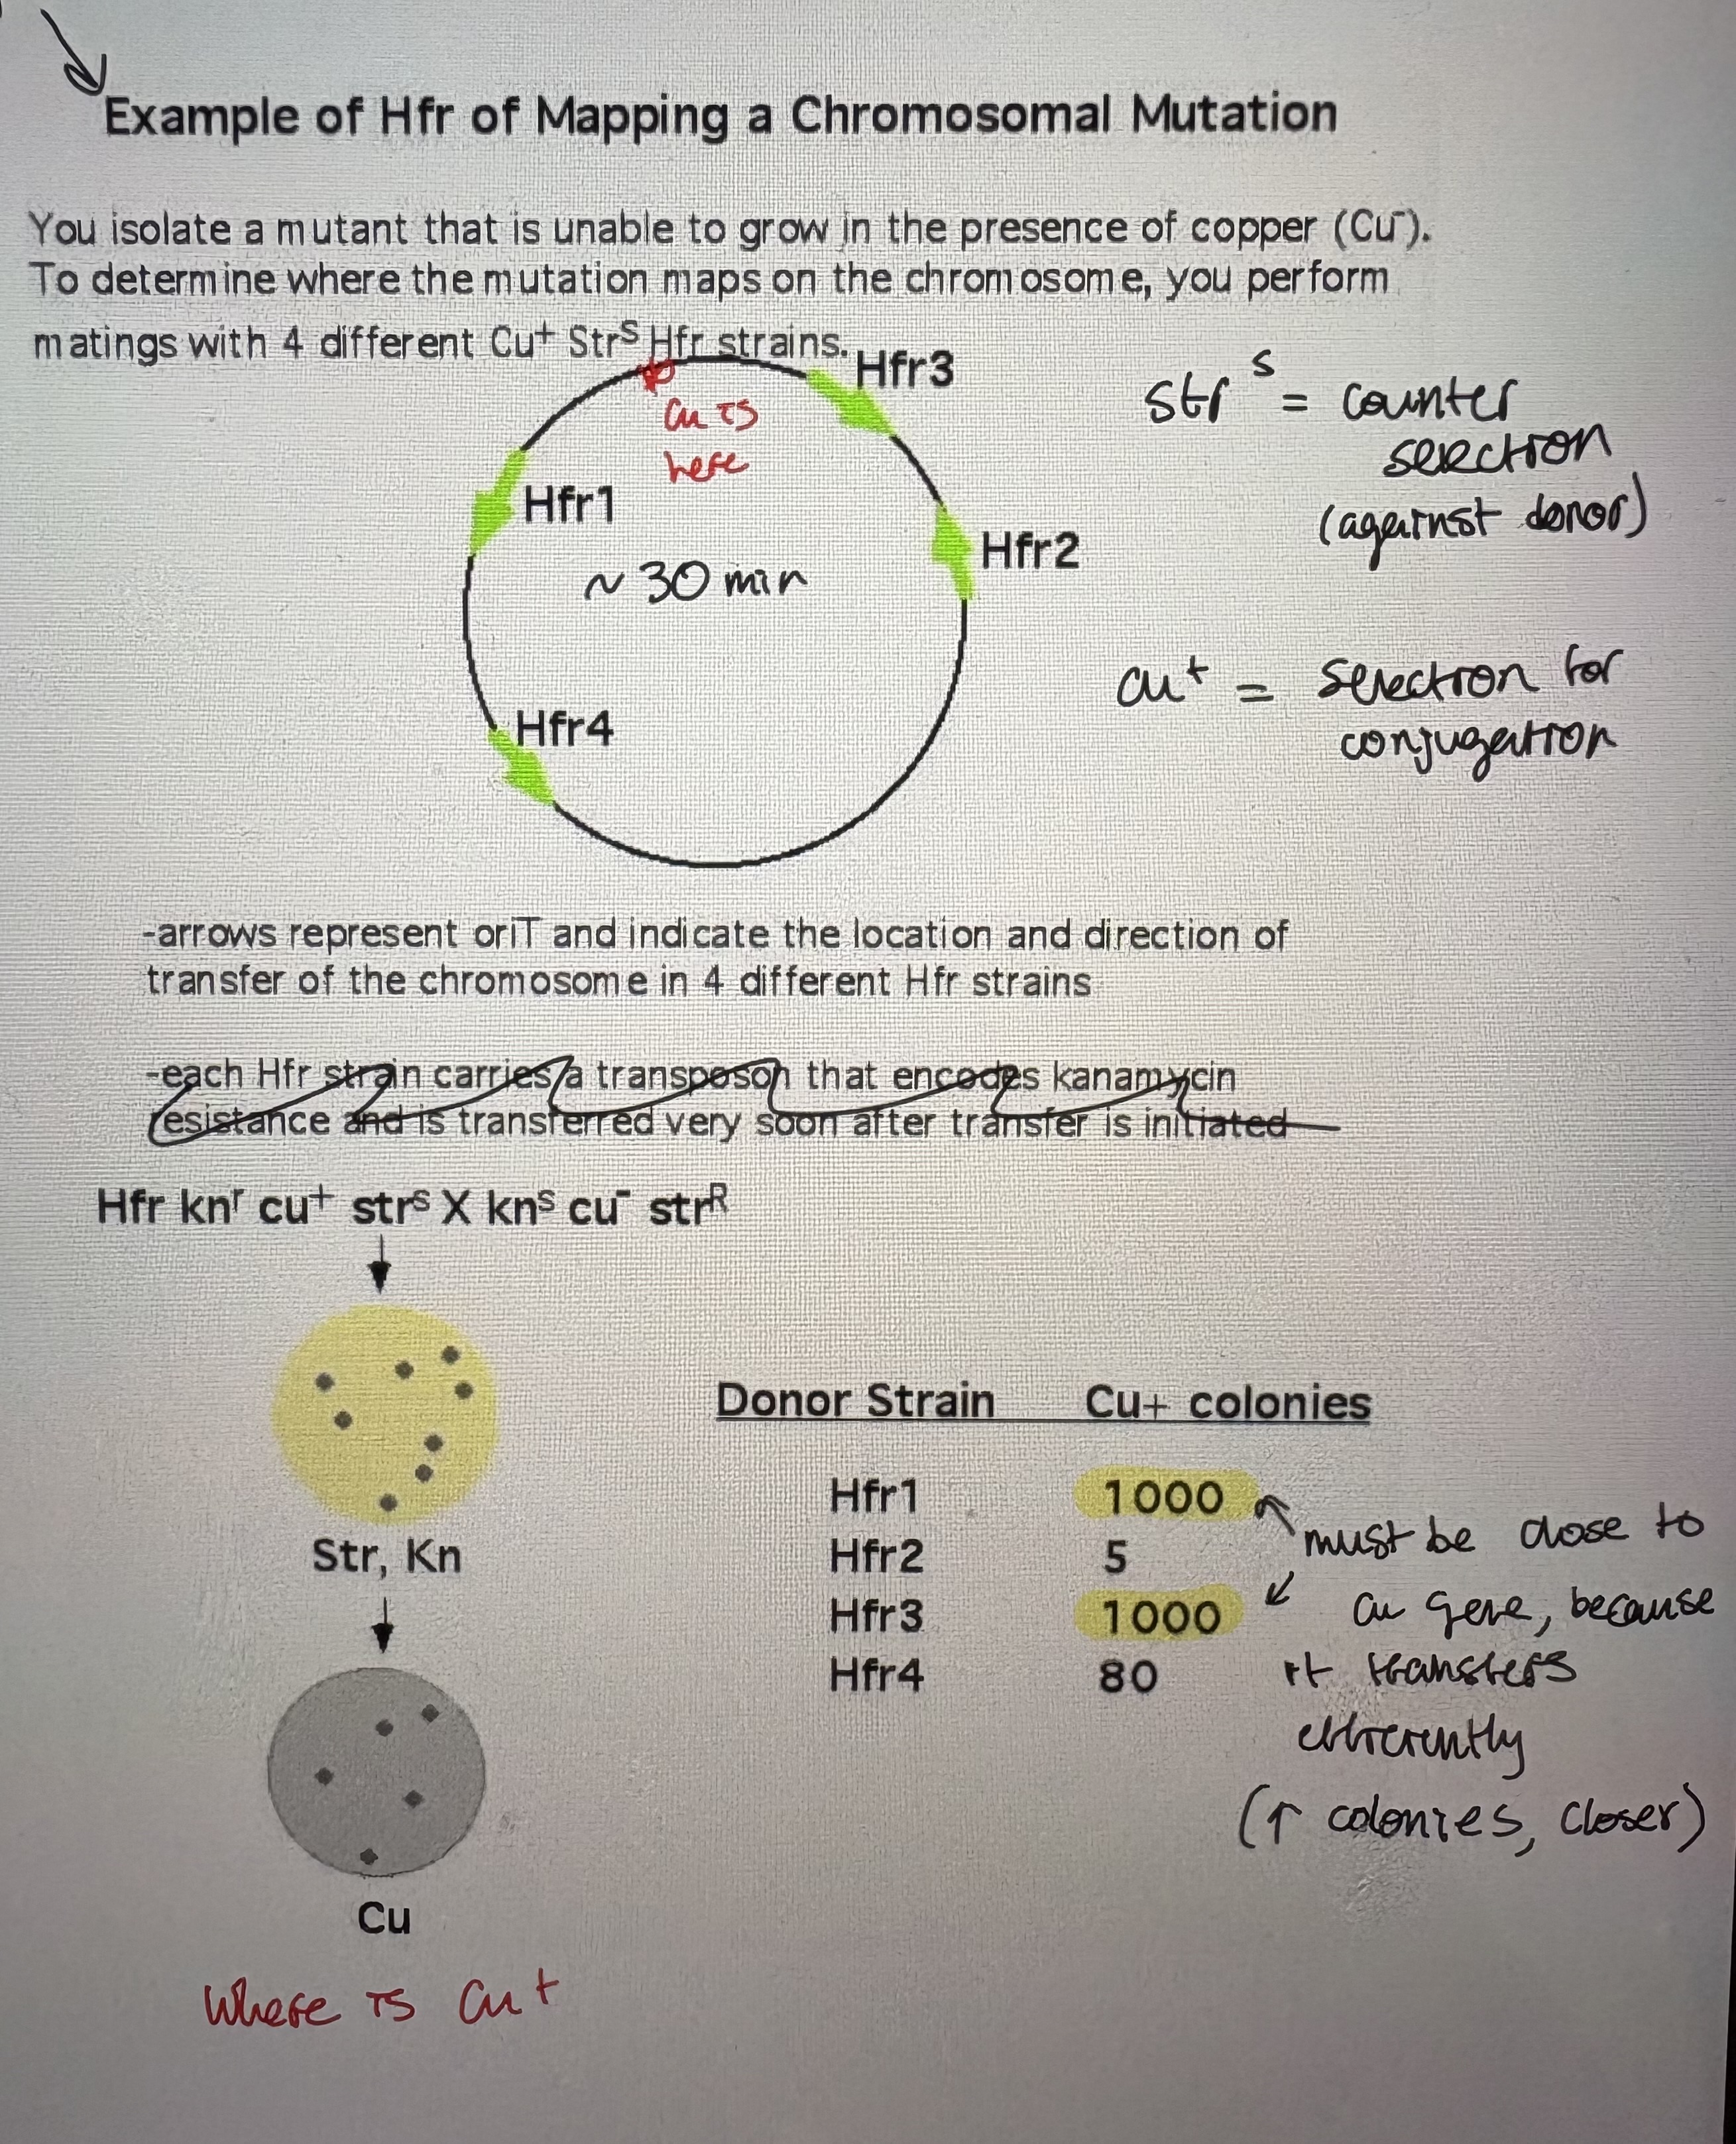 Example of Hfr of Mapping a Chromosomal Mutation
You isolate a mutant that is unable to grow in the presence of copper (Cu⁻).
To determine where the mutation maps on the chromosome, you perform
matings with 4 different Cu⁺ Strˢ Hfr strains.
Hfr3
Cu is
here
Hfr1
Hfr2
~ 30 min
Hfr4
str ˢ = counter
selection
(against donor)
cu⁺ = selection for
conjugation
-arrows represent oriT and indicate the location and direction of
transfer of the chromosome in 4 different Hfr strains
-each Hfr strain carries a transposon that encodes kanamycin
resistance and is transferred very soon after transfer is initiated
Hfr knʳ cu⁺ strˢ X knˢ cu⁻ strᴿ
Str, Kn
Cu
Where is Cu+
Donor Strain Cu+ colonies
Hfr1 1000
Hfr2 5
Hfr3 1000
Hfr4 80
must be close to
cu gene, because
it transfers
efficiently
(↑ colonies, closer)